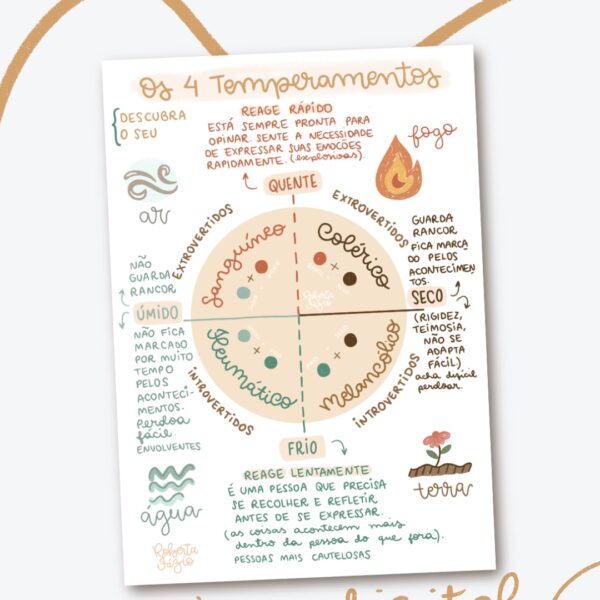 Os 4 Temperamentos
DESCUBRA
O SEU
REAGE RÁPIDO
ESTÁ SEMPRE PRONTA PARA
OPINAR. SENTE A NECESSIDADE
DE EXPRESSAR SUAS EMOCÕES
RAPIDAMENTE. (explosivas)
fogo
ar
QUENTE
EXTROVERTIDOS
EXTROVERTIDOS
Sanguíneo
Colérico
GUARDA
RANCOR
FICA MARCA
DO PELOS
ACONTECIMEN
TOS.
NÃO
GUARDA
RANCOR
ÚMIDO
SECO
Roberta
NÃO FICA
MARCADO
POR MUITO
TEMPO
PELOS
ACONTECI-
MENTOS.
Perdoa
fácil.
ENVOLVENTES
(RIGIDEZ,
TEIMOSIA,
NÃO SE
ADAPTA
FÁCIL)
acha difícil
perdoar.
Fleumático
Melancólico
INTROVERTIDOS
INTROVERTIDOS
FRIO
REAGE LENTAMENTE
É UMA PESSOA QUE PRECISA
SE RECOLHER E REFLETIR
ANTES DE SE EXPRESSAR.
(as coisas acontecem mais
dentro da pessoa do que fora).
PESSOAS MAIS CAUTELOSAS
água
terra
Roberta
Fázio
digital